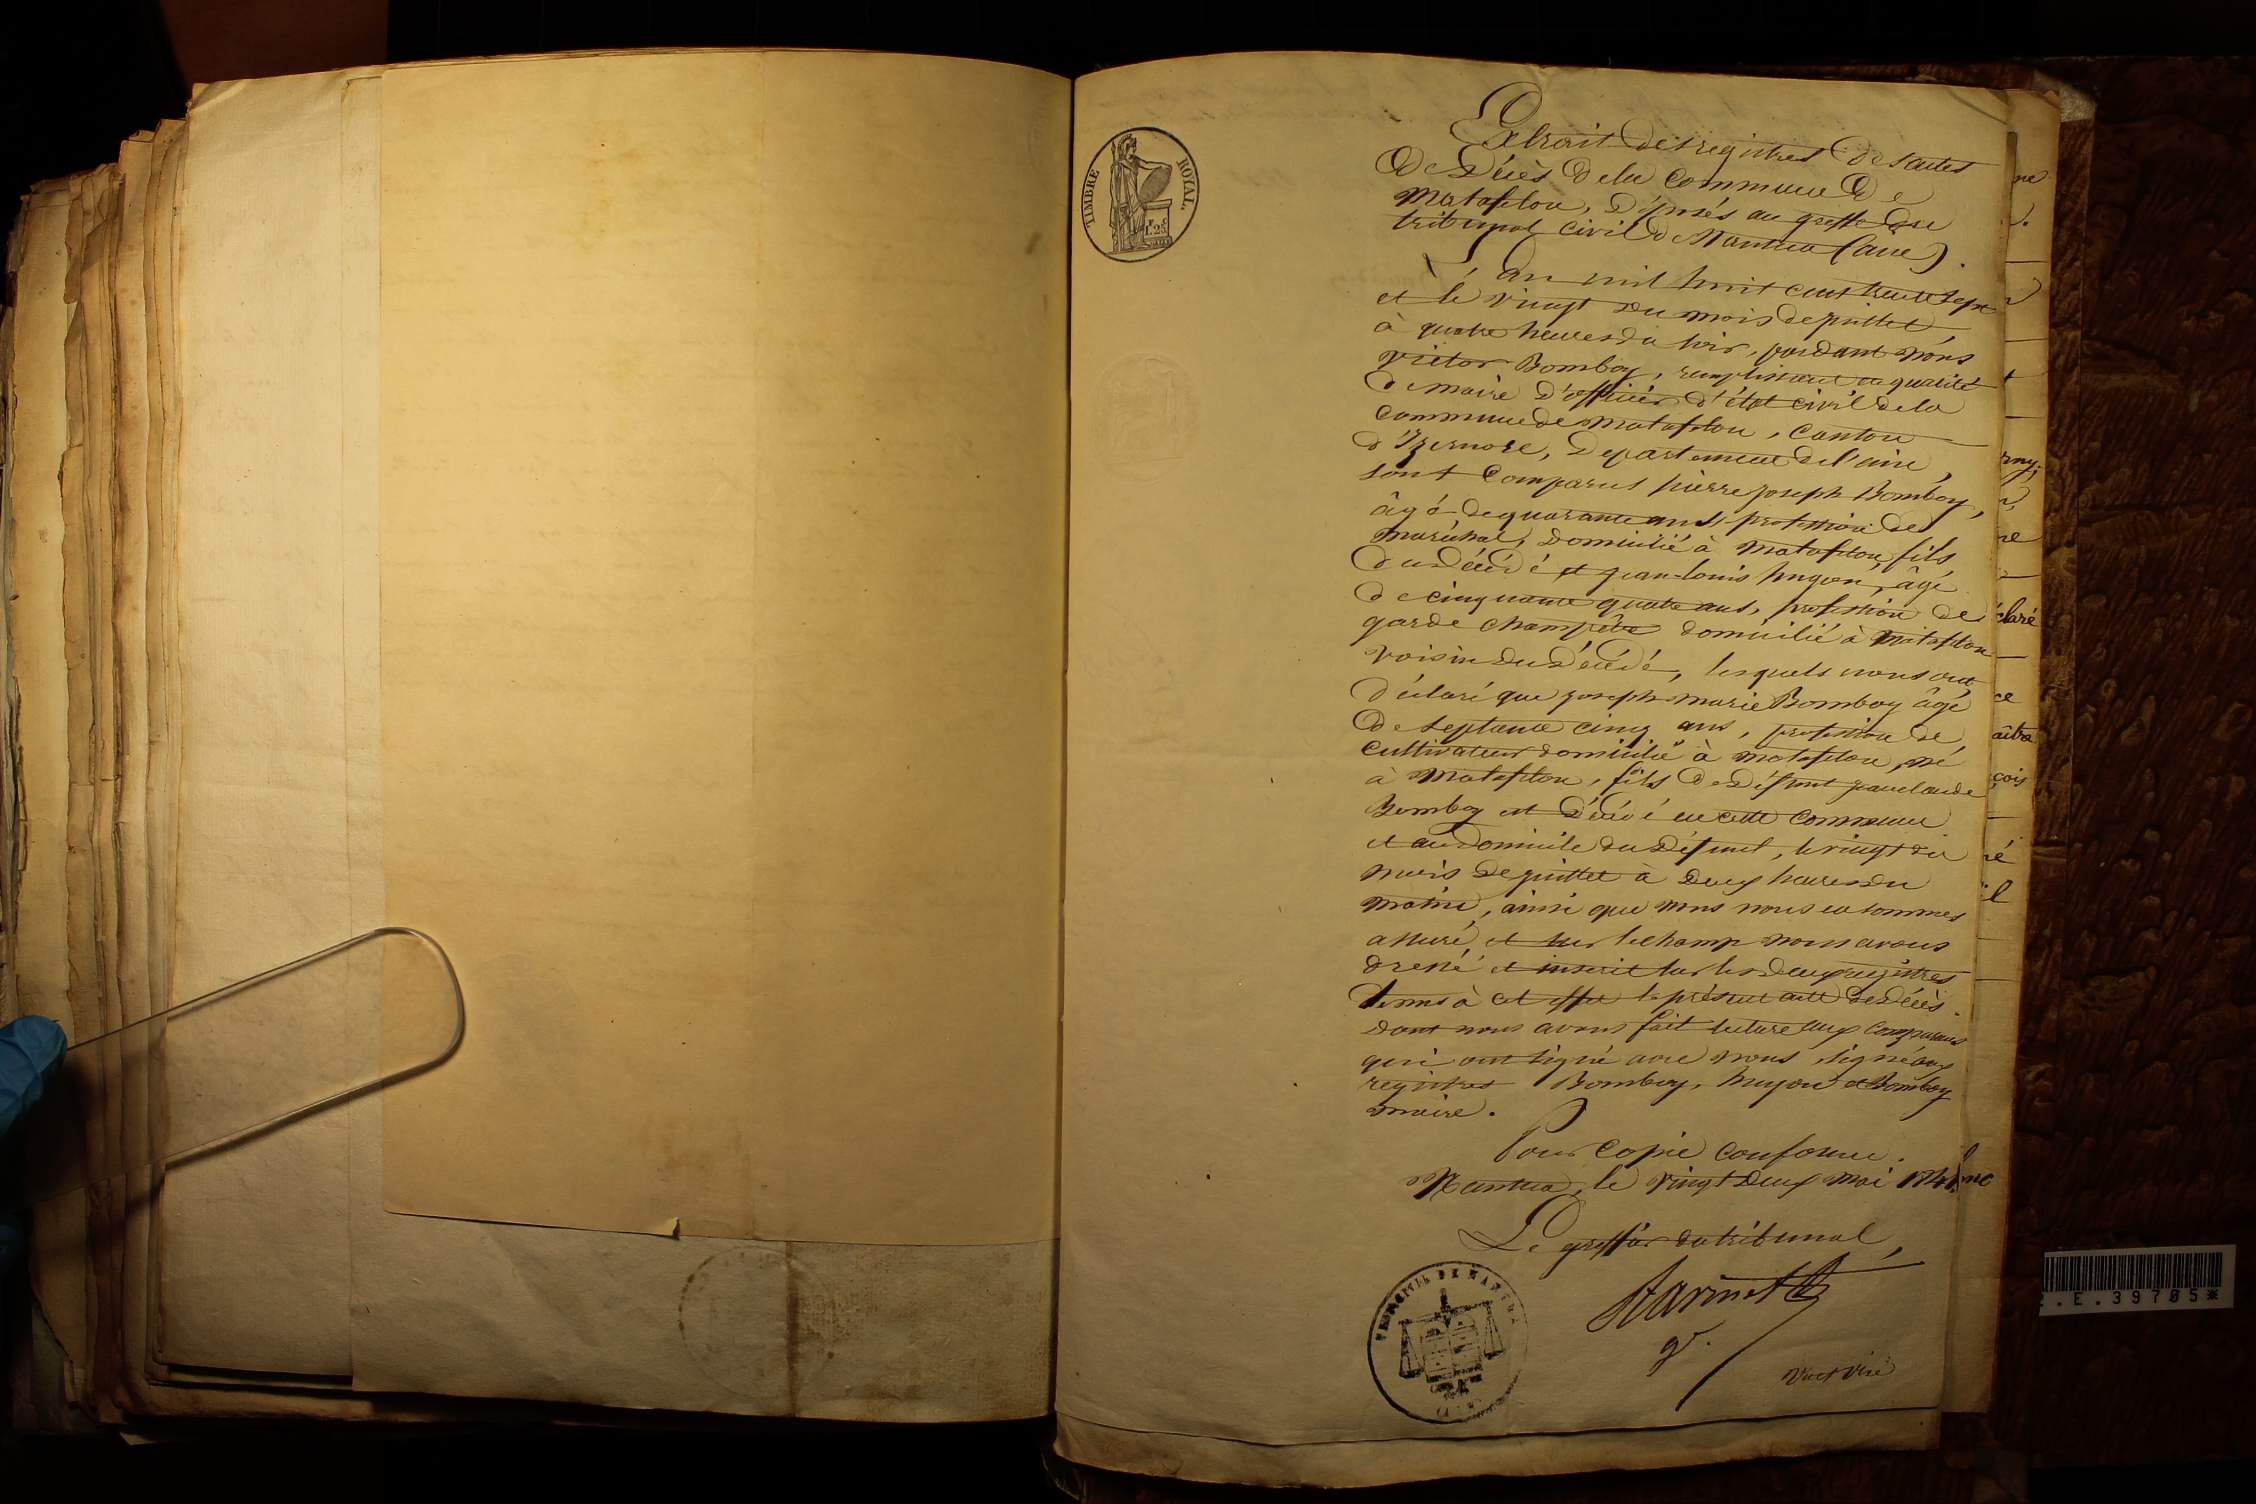 TIMBRE ROYAL.
1.25
Extrait des registres des actes
De Décès de la commune De
Matafelon, Déposés au greffe du
tribunal civil de Nantua (ain).
L'an mil huit cent trente sept
et le vingt du mois de juillet
à quatre heures du soir, pardant nous
victor Bomboy, remplissant en qualité
de maire D'officier d'état civil de la
commune de Matafelon, canton
d'Izernore, Département de l'ain,
sont comparus pierre joseph Bomboy,
âgé de quarante ans, profession de
maréchal, domicilié à Matafelon, fils
du décédé et jean-louis hugon, âgé
de cinquante quatre ans, profession de
garde champêtre domicilié à Matafelon
voisin du Décédé, lesquels nous ont
déclaré que joseph marie Bomboy âgé
De septante cinq ans, profession de
cultivateur domicilié à matafelon, né
à Matafelon, fils de Défunt jauclaude
Bomboy est Décédé en cette commune
et au domicile du Défunt, le vingt du
mois de juillet à deux heures du
matin, ainsi que nous nous en sommes
assuré, et sur le champ nous avons
dressé et inscrit sur les deux registres
tenus à cet effet le présent acte de décès.
dont nous avons fait lecture aux comparants
qui ont signé avec nous, signé aux
registres Bomboy, hugon et Bomboy
maire.
Pour copie conforme.
Nantua, le vingt deux mai
Le greffier du tribunal,
gr.
Vu et visé
ne
rny,
claré
ce
aître
çois
né
il
me
.E.39705*